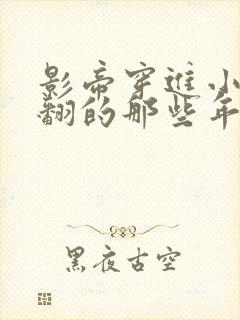 影帝穿进小
翻的那些年
黑夜古空